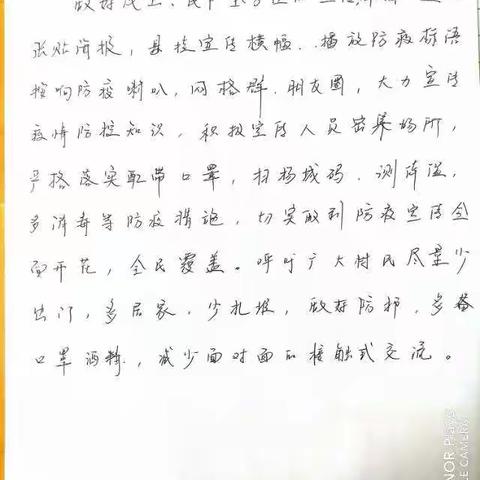 张贴海报，悬挂宣传横幅、播放防疫标语
按响防疫喇叭，网格群、朋友圈，大力宣传
疫情防控知识，积极宣传人员密集场所，
严格落实配带口罩，扫场域码、测体温，
多消毒等防疫措施，切实做到防疫宣传全
面开花，全民覆盖。呼吁广大村民尽量少
出门，多居家，少扎堆，做好防护，多备
口罩酒精，减少面对面的接触式交流。